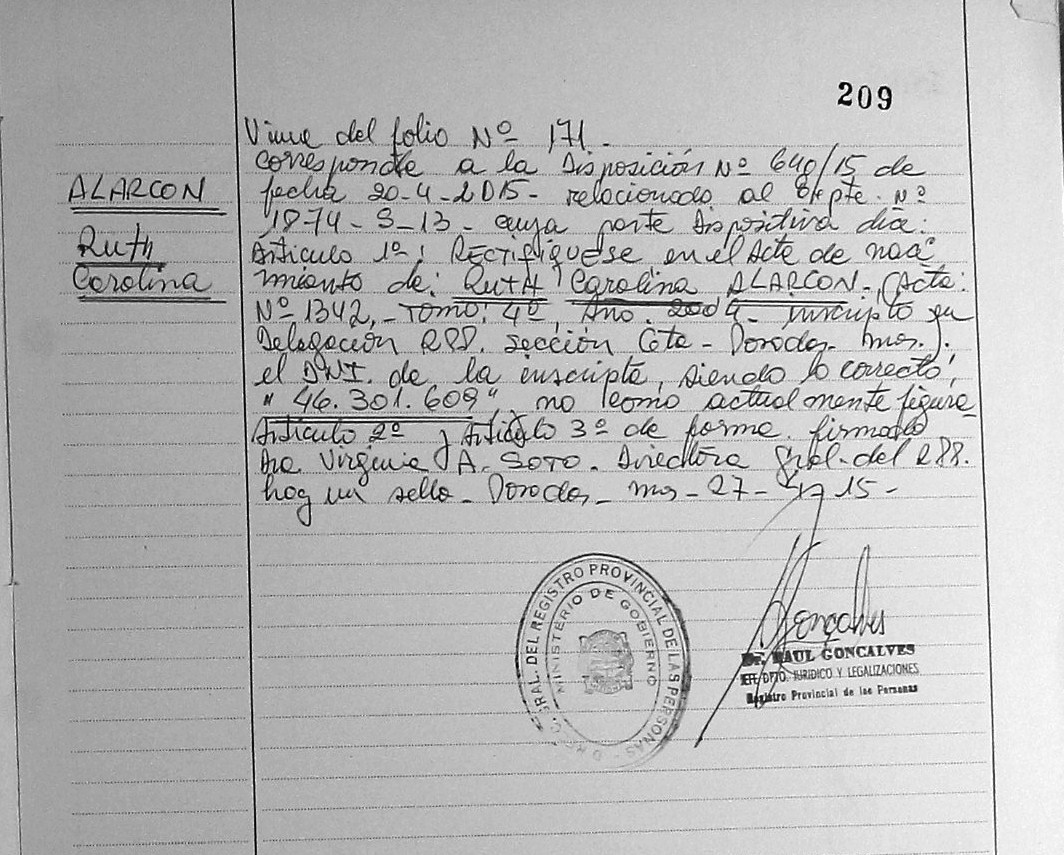 209
ALARCON
Ruth
Carolina
Viene del folio Nº 171.-
Corresponde a la Disposición Nº 640/15 de
fecha 20-4-2015- relacionado al Expte. Nº
1874-S-13- cuya parte Dispositiva dice:
Artículo 1º: RECTIFIQUESE en el Acta de naci
miento de: RUTH Carolina ALARCON-, (Acta:
Nº 1342,- Tomo: 4º, Año: 2004- inscripto en
Delegación RPP. sección Cta- Posadas- Mnes.).
el DNI. de la inscripta, siendo lo correcto:
" 46.301.609" no como actualmente figura-
Artículo 2º y Artículo 3º de forma. firmado
Dra. Virginia A. SOTO. Directora Gral. del RPP.
hay un sello- Posadas- mns- 27- 15-
DIREC. GRAL. DEL REGISTRO PROVINCIAL DE LAS PERSONAS
MINISTERIO DE GOBIERNO
Gonçalves
Dr. RAUL GONCALVES
JEFE DPTO. JURIDICO Y LEGALIZACIONES
Registro Provincial de las Personas